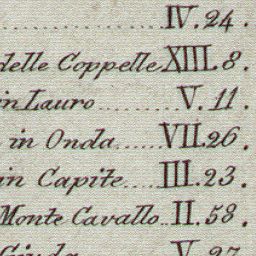 .................... IV. 24.
delle Coppelle XIII. 8.
in Lauro ........... V. 11.
in Onda ...... VII. 26.
in Capite .... III. 23.
Monte Cavallo .. II. 58.